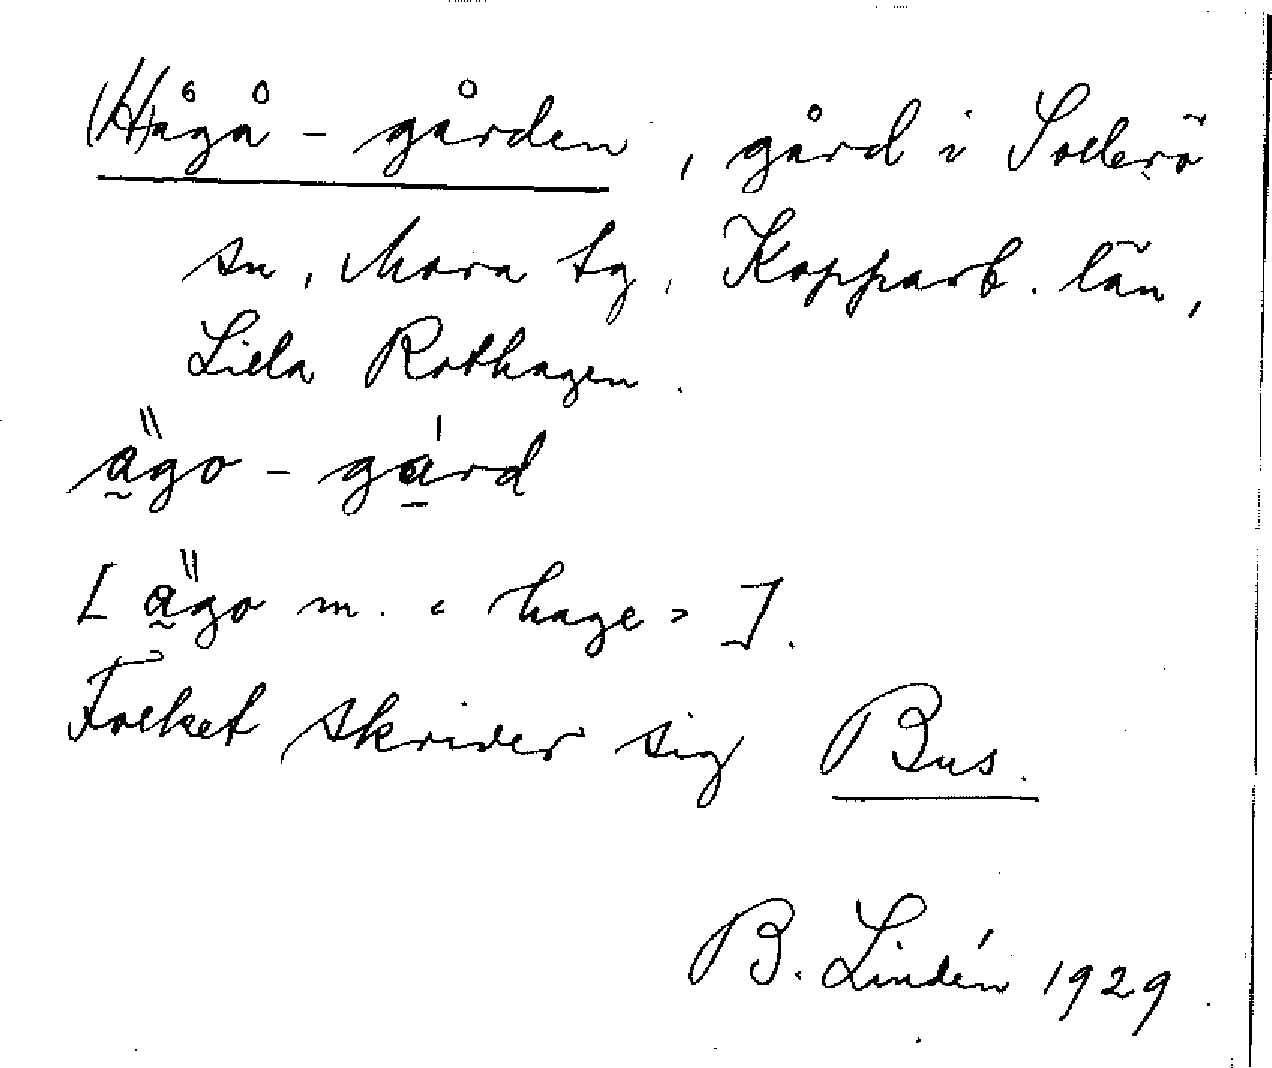 (H)ågå - gården, gård i Sollerö
sn, Mora tg, Kopparb. län,
Lilla Rothagen.
ägo - gård
[ ägo m. « hage » ].
Folket skriver sig Bus.
B. Lindén 1929